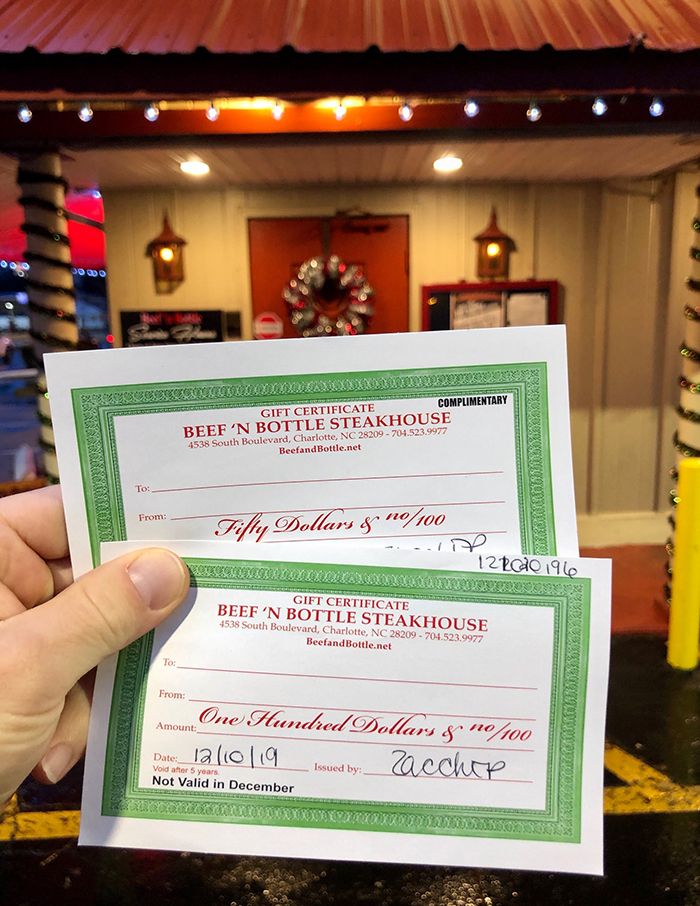 Beef 'n Bottle
COMPLIMENTARY
GIFT CERTIFICATE
BEEF 'N BOTTLE STEAKHOUSE
4538 South Boulevard, Charlotte, NC 28209 - 704.523.9977
BeefandBottle.net
To:
From:
Fifty Dollars & no/100
GIFT CERTIFICATE
BEEF 'N BOTTLE STEAKHOUSE
4538 South Boulevard, Charlotte, NC 28209 - 704.523.9977
BeefandBottle.net
To:
From:
Amount: One Hundred Dollars & no/100
Date: 12/10/19 Issued by:
Void after 5 years.
Not Valid in December